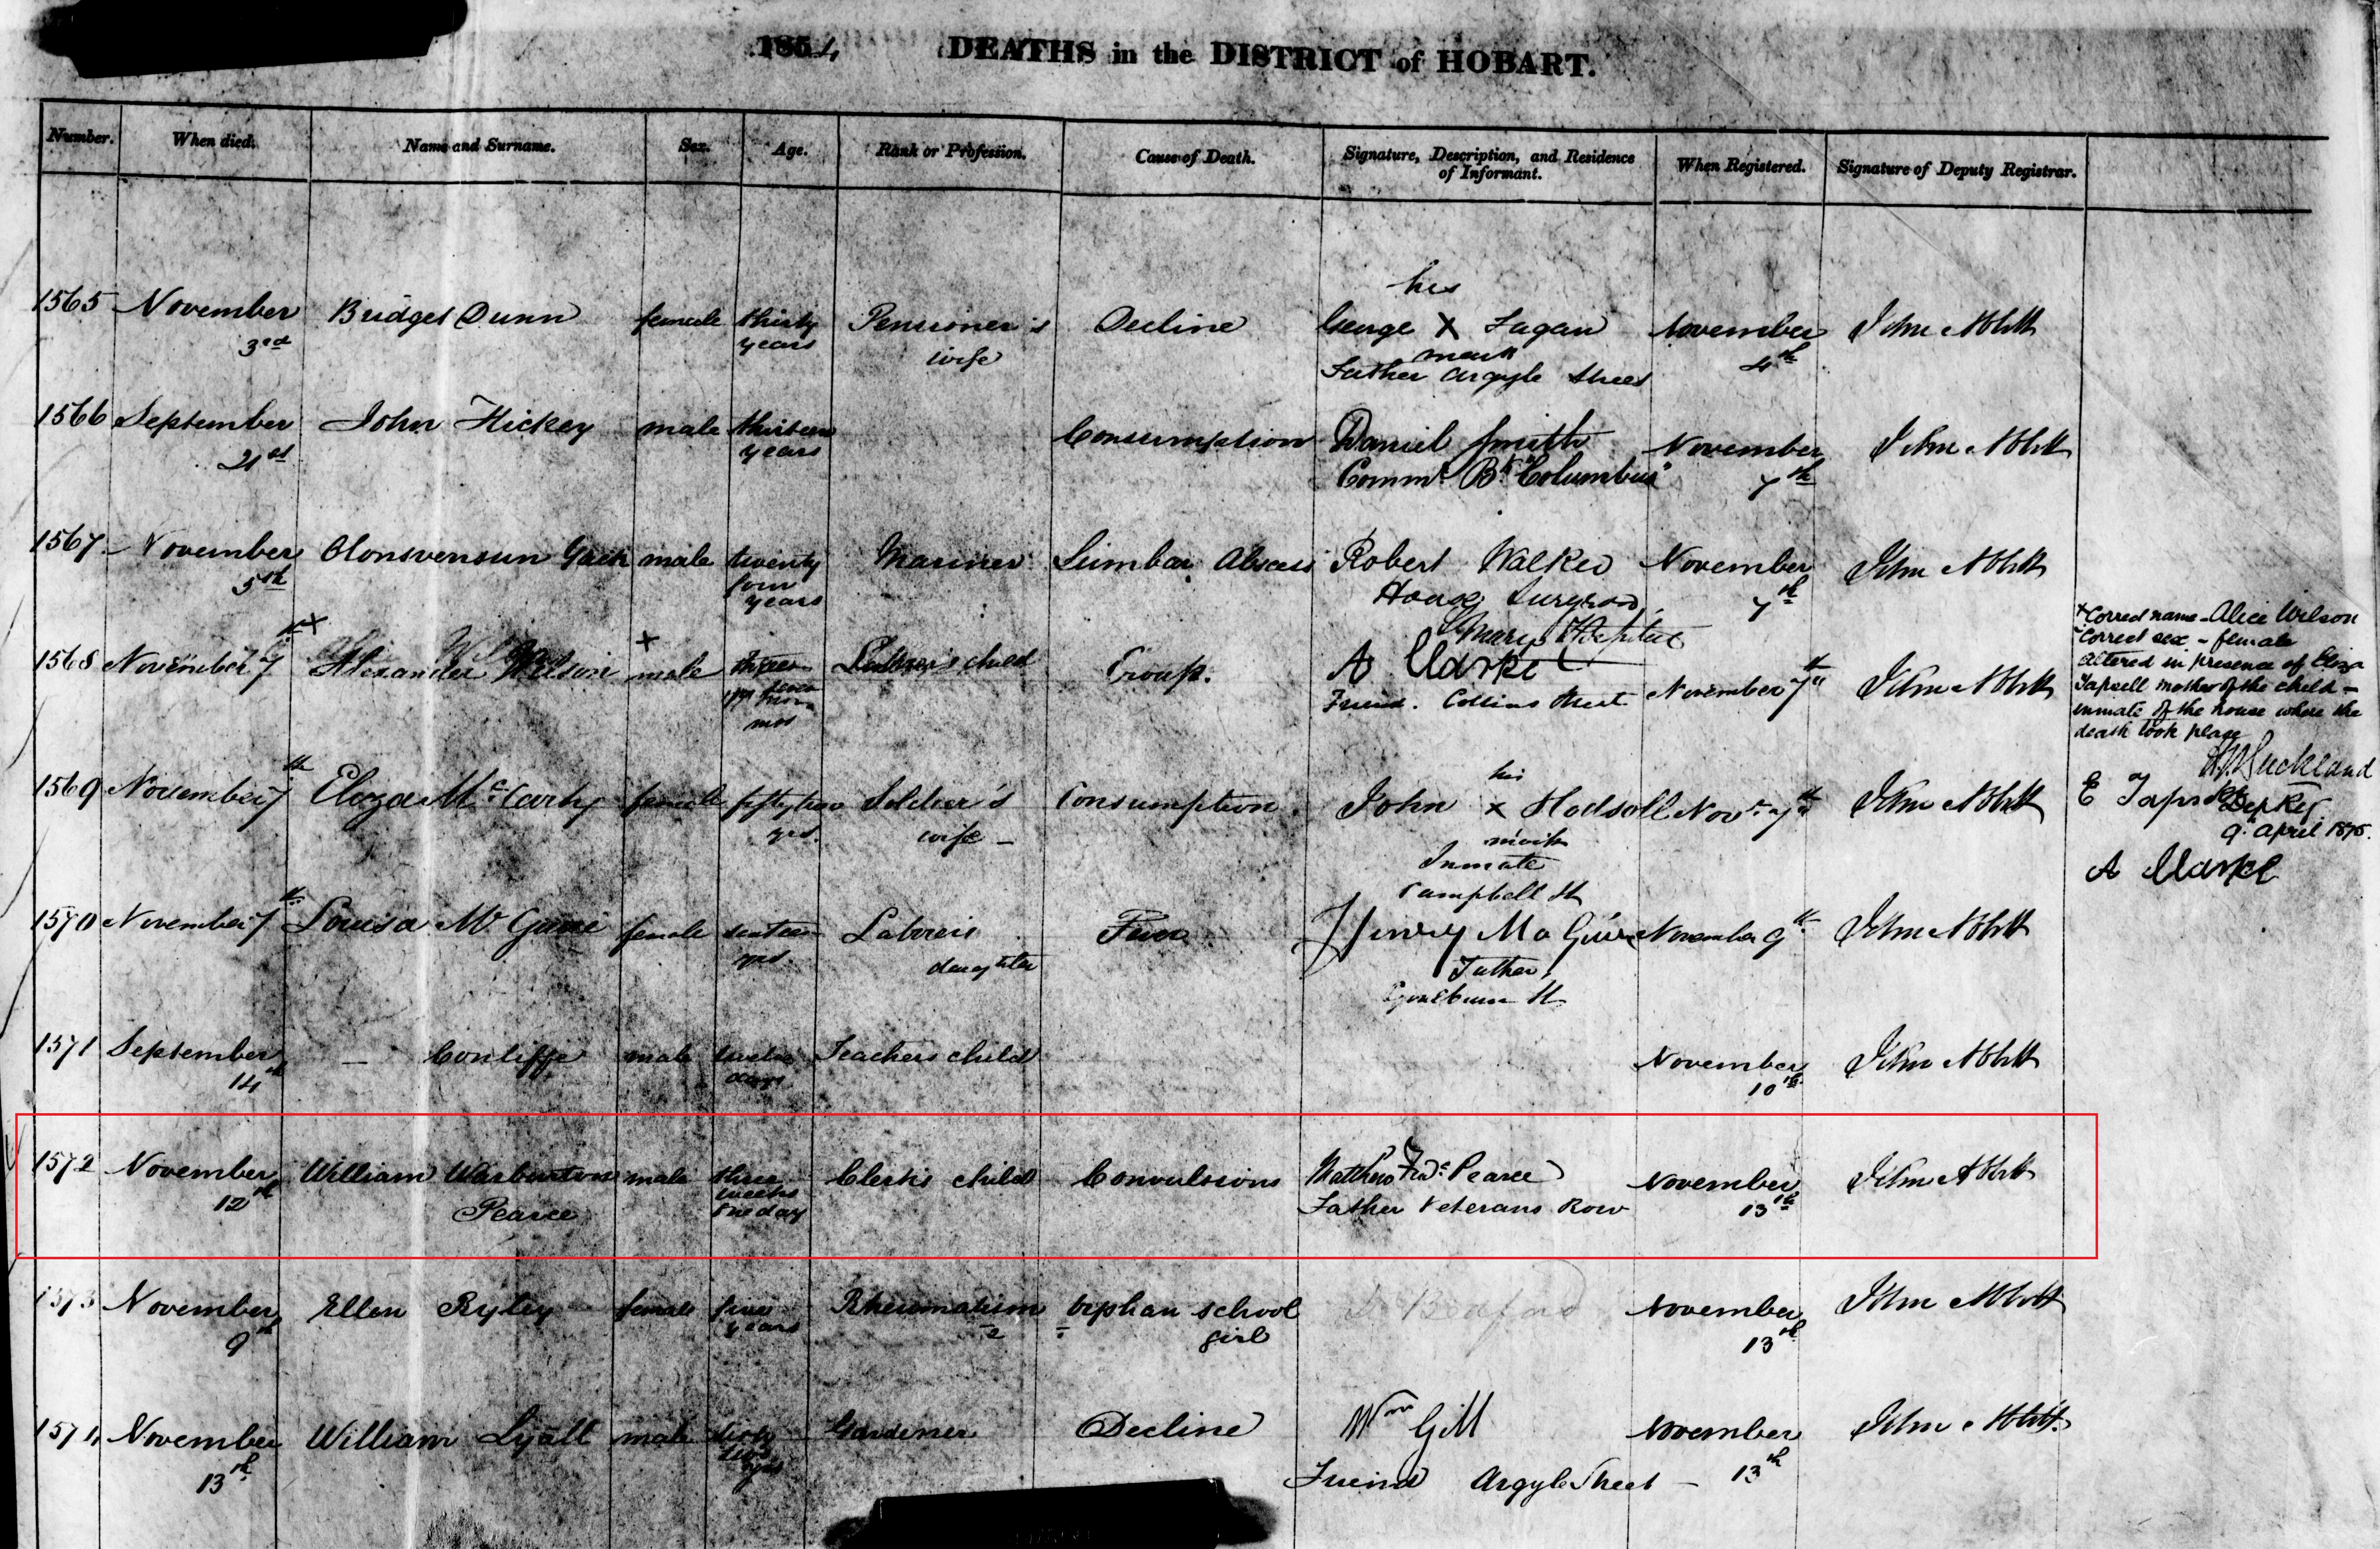 1854 DEATHS in the DISTRICT of HOBART.
Number. When died. Name and Surname. Sex. Age. Rank or Profession. Cause of Death. Signature, Description, and Residence of Informant. When Registered. Signature of Deputy Registrar.
his
1565 November Bridget Dunn female thirty Pensioner's Decline George X Fagan November John Abbott
3rd years wife mark 4th
Father Argyle Street
1566 September John Hickey male thirteen Consumption Daniel Smith November John Abbott
21st years Commr Bk "Columbus" 7th
1567 November male twenty Mariner Lumbar Abscess Robert Walker November John Abbott
5th four House Surgeon 7th
years St Marys Hospital
1568 November 7th x Alexander Wilson x male child Croup. A Clarke November 7th John Abbott
mos Friend. Collins Street
x Correct name - Alice Wilson
x Correct sex - female
altered in presence of Eliza
Tapsell mother of the child -
inmate of the house where the
death took place
Buckland
E Tapsell
9 April 1895.
A Clarke
his
1569 November 7th Eliza McCarthy female fifty two Soldier's Consumption John x Hodsoll Novr 7th John Abbott
yrs. wife - mark
Inmate
Campbell St
1570 November 7th Louisa female Laborers Fever Henry November 9th John Abbott
yrs. daughter Father
Goulburn St
1571 September - Conliffe male twelve Teachers child November John Abbott
14th days 10th
1572 November William Warburton male three Clerks child Convulsions Matthew Fredc Pearce November John Abbott
12th Pearce weeks Father Veterans Row 13th
one day
1573 November Ellen Ryley female five Rheumatism orphan school Bedford November John Abbott
9th years 2 girl 13th
1574 November William Lyall male Gardener Decline Wm Gill November John Abbott
13th yrs Freind Argyle Street - 13th